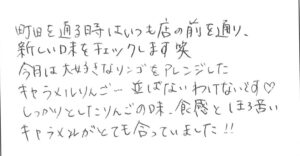 町田を通る時はいつも店の前を通り、
新しい味をチェックします笑
今月は大好きなリンゴをアレンジした
キャラメルりんご…並ばないわけないです♡
しっかりとしたりんごの味、食感とほろ苦い
キャラメルがとても合っていました!!